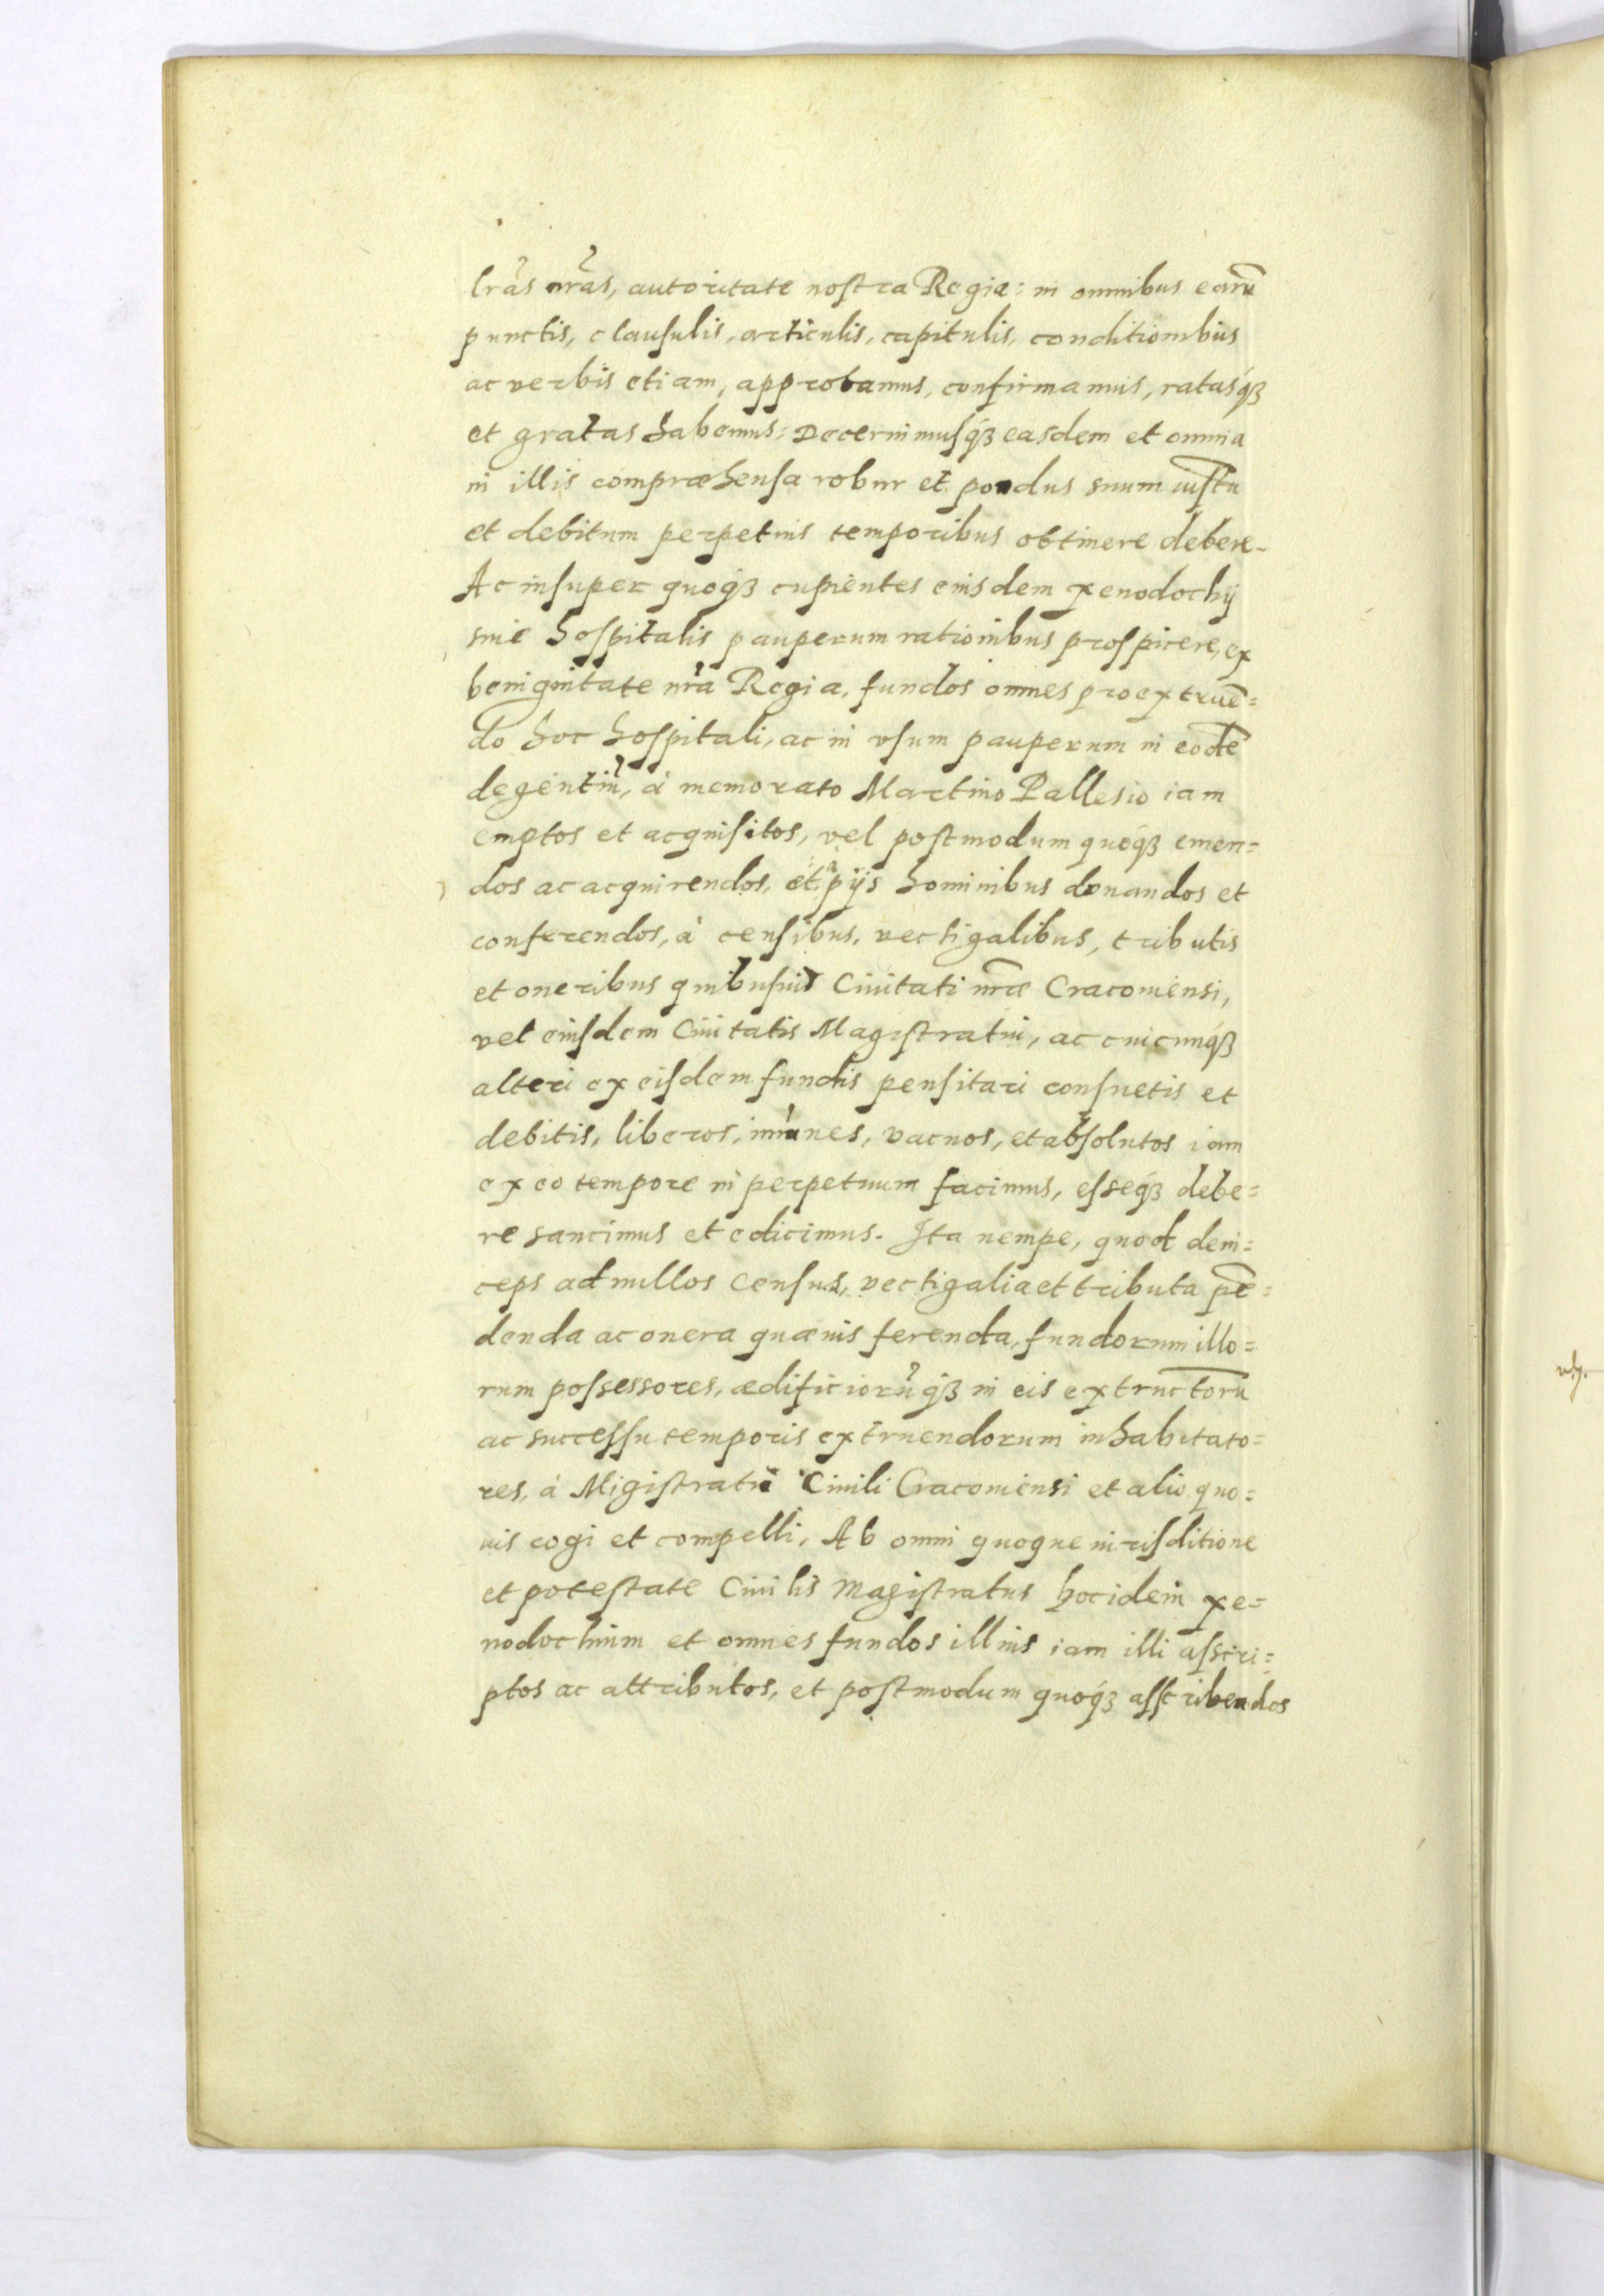 lrãs nrãs, autoritate nostra Regia: in omnibus earũ
punctis, clausulis, articulis, capitulis, conditionibus
ac verbis etiam, approbamus, confirmamus, ratasq́ꝫ
et gratas habemus: Decernimusq́ꝫ easdem et omnia
in illis compræhensa robur et pondus suum iustũ
et debitum perpetuis temporibus obtinere debere.
Ac insuper quoq́ꝫ cupientes eiusdem xenodochij
siue hospitalis pauperum rationibus prospicere, ex
benignitate nrã Regia, fundos omnes pro extruẽ=
do hoc hospitali, ac in vsum pauperum in eodẽ
degentiũ, à memorato Martino Pallesio iam
emptos et acquisitos, vel postmodum quoq́ꝫ emen=
dos ac acquirendos, et à pijs hominibus donandos et
conferendos, à censibus, vectigalibus, tributis
et oneribus quibusuis Ciuitati nræ Cracouiensi,
vel eiusdem Ciuitatis Magistratui, ac cuicunq́ꝫ
alteri ex eisdem fundis pensitari consuetis et
debitis, liberos, im̃unes, vacuos, et absolutos iam
ex eo tempore in perpetuum facimus, esseq́ꝫ debe=
re sancimus et edicimus. Ita nempe, quod dein=
ceps ad nullos Census, vectigalia et tributa pẽ=
denda ac onera quæuis ferenda, fundorum illo=
rum possessores, ædificiorũq́ꝫ in eis extructorũ
ac successu temporis extruendorum inhabitato=
res, à Migistratu Ciuili Cracouiensi et alio quo=
uis cogi et compelli, Ab omni quoque iurisditione
et potestate Ciuilis Magistratus hoc idem xe=
nodochium et omnes fundos illius iam illi asscri=
ptos ac attributos, et postmodum quoq́ꝫ asscribendos